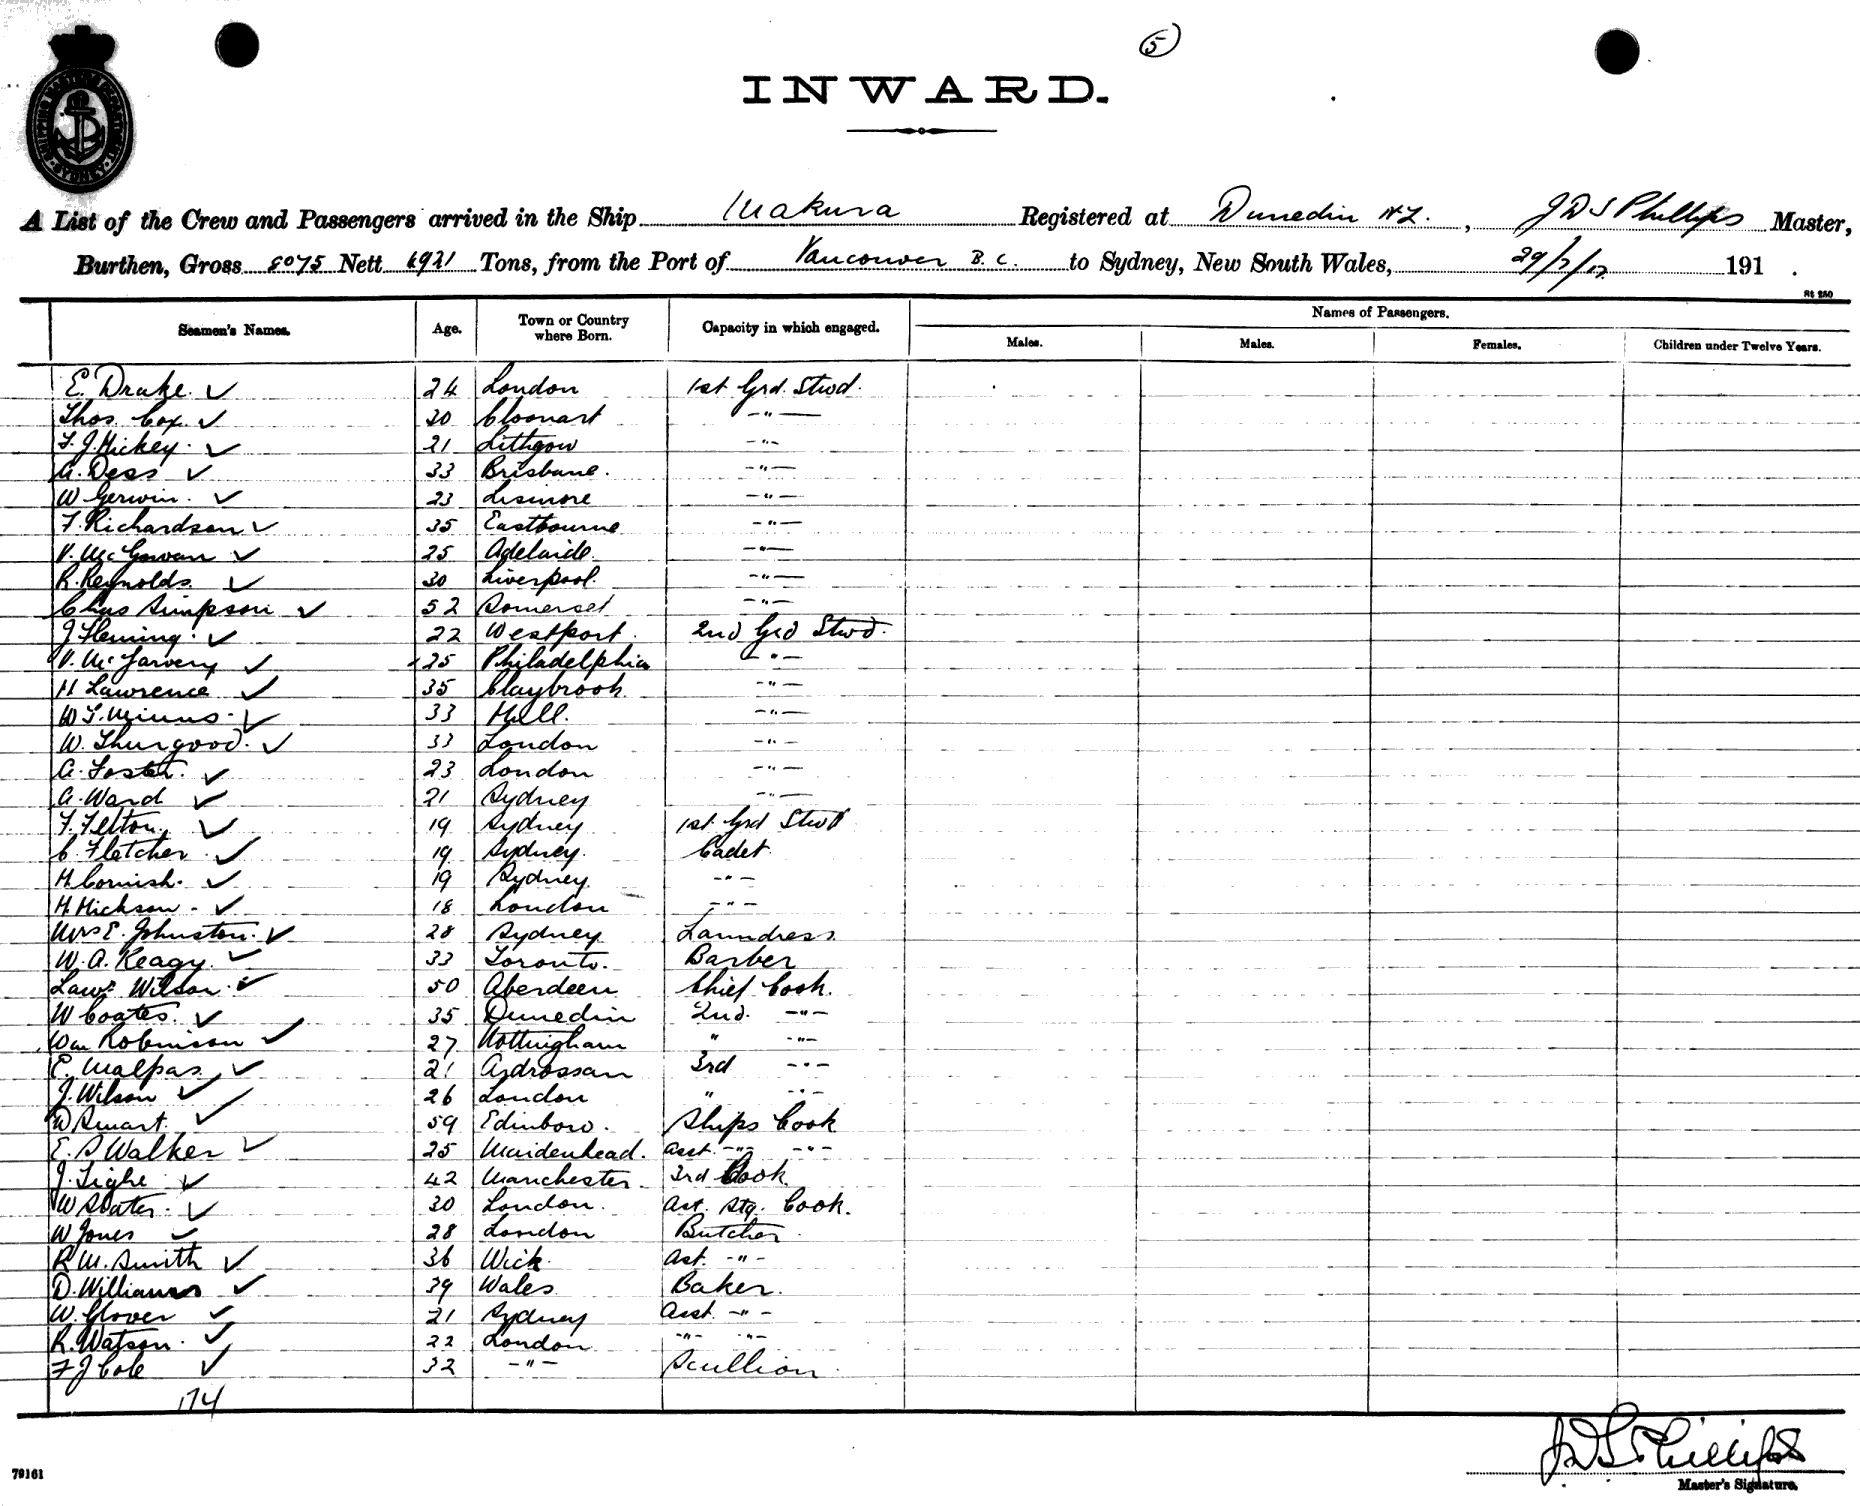 5
INWARD.
SHIPPING MASTERS DEPARTMENT SYDNEY
A List of the Crew and Passengers arrived in the Ship Makura Registered at Dunedin N.Z., J D S Phillips Master,
Burthen, Gross 8075 Nett 4921 Tons, from the Port of Vancouver B.C. to Sydney, New South Wales, 191 .
St 250
Seamen's Names. Age. Town or Country where Born. Capacity in which engaged. Names of Passengers.
Males. Males. Females. Children under Twelve Years.
E. Drake. 24 London 1st Grd. Stwd.
Thos. Cox. 30 Cloonart -"-
T. J. Hickey. 21 Lithgow -"-
A. Dess 33 Brisbane. -"-
W Gerwin. 23 Lismore -"-
F. Richardson 35 Eastbourne -"-
V. McGowan 25 Adelaide. -"-
R. Reynolds. 30 Liverpool. -"-
Chas Simpson 52 Somerset -"-
J Fleming. 22 Westport. 2nd Grd Stwd.
V. McGarvery 25 Philadelphia -"-
H Lawrence 35 Claybrook -"-
W T. Minns. 33 Hull. -"-
W. Thurgood. 33 London -"-
A. Foster. 23 London -"-
A. Ward 21 Sydney -"-
F. Felton, 19 Sydney 1st Grd Stwd
C. Fletcher. 19 Sydney. Cadet
H. Cornish. 19 Sydney. -"-
H. Hickson. 18 London -"-
Mrs E. Johnston. 28 Sydney Laundress.
W. A. Keagy. 33 Toronto. Barber
Lawr. Wilson. 50 Aberdeen Chief Cook.
W Coates. 35 Dunedin 2nd. -"-
Wm Robinson 27 Nottingham " -"-
E. Malpas. 21 Ardrossan 3rd -"-
J. Wilson 26 London " -"-
D Smart. 59 Edinboro. Ships Cook
E. S Walker 25 Maidenhead. Asst. -"- -"-
J. Tighe 42 Manchester. 3rd Cook.
W Slater. 30 London. Ast. Stg. Cook.
W Jones 28 London Butcher.
R M. Smith 36 Wick. Ast. -"-
D. Williams 39 Wales. Baker.
W. Glover 21 Sydney Asst. -"-
R. Watson. 22 London -"- -"-
F J Cole 32 -"- Scullion.
174
J D S Phillips
Master's Signature.
79161